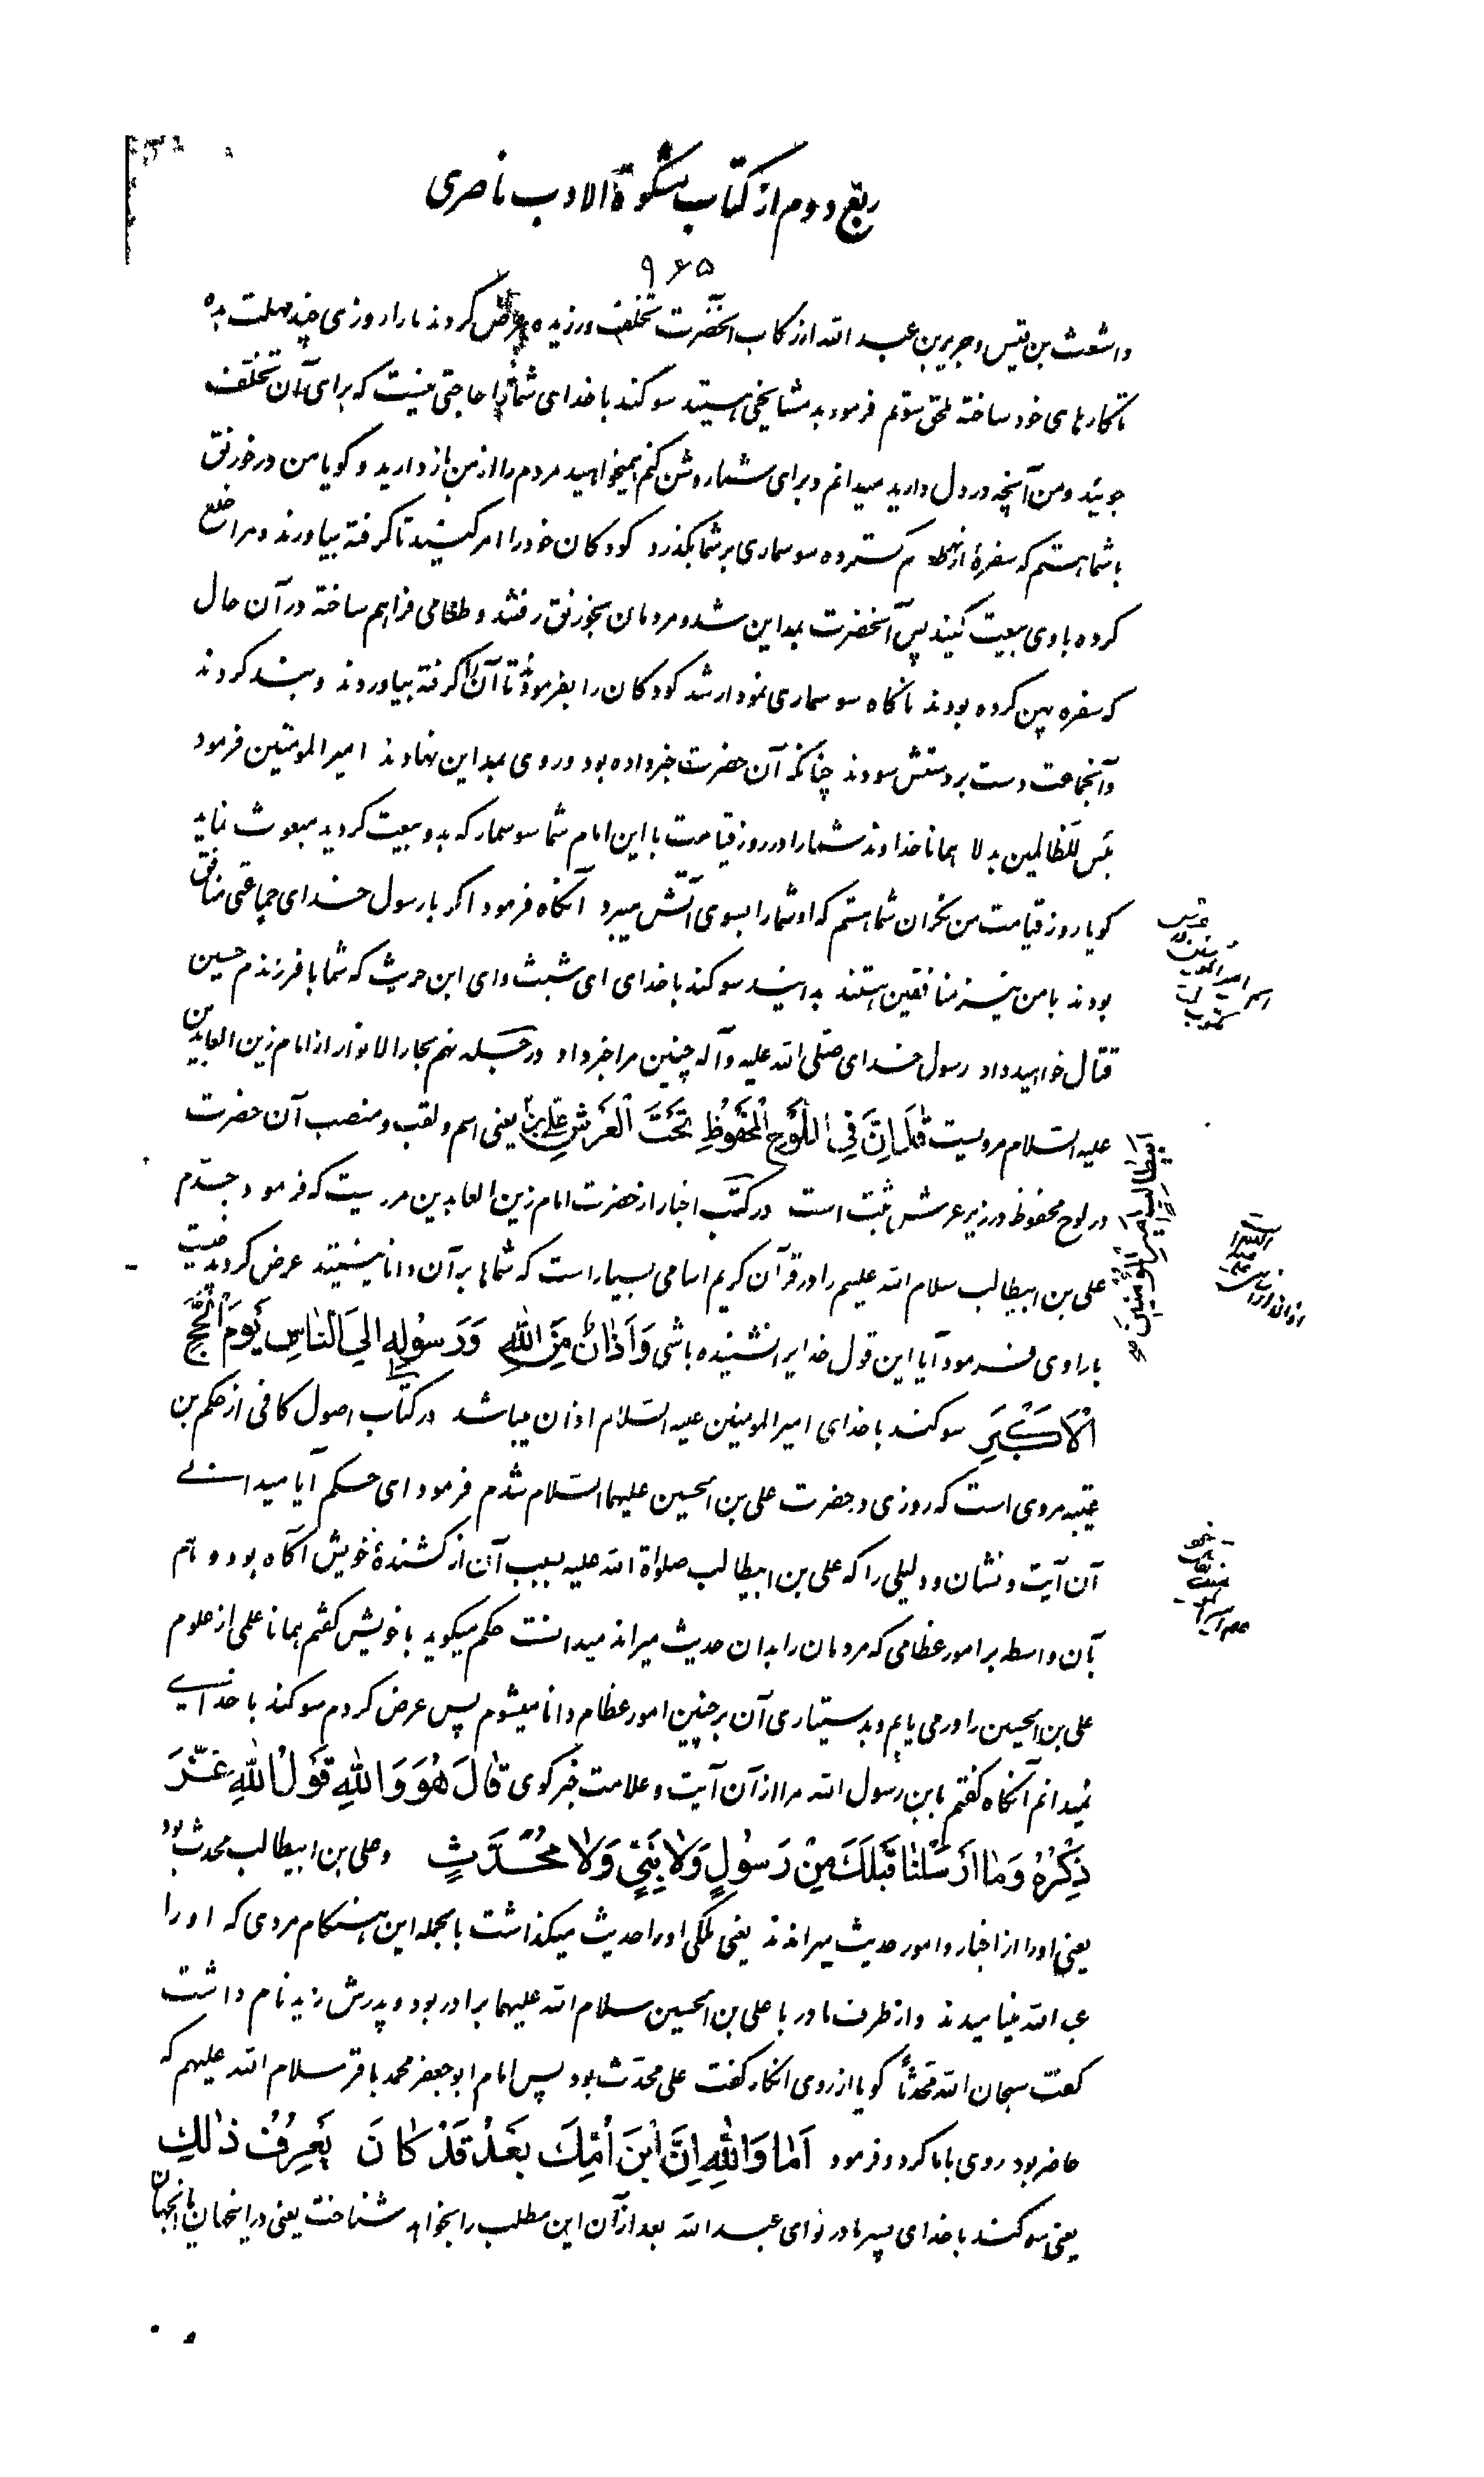 ربع دوم از کتاب مشکوة الادب ناصری
۹۶۵
و اشعث بن قیس و جریر بن عبد الله از رکاب آنحضرت تخلف ورزیده عرض کردند ما را روزی چند مهلت بده
تا بکارهای خود ساخته ملحق شویم فرمود بد مشایخی هستید سوکند با خدای شما را حاجتی نیست که برای آن تخلف
جوئید و من آنچه در دل دارید میدانم و برای شما روشن کنم همیخواهید مردم را از من باز دارید و کویا من در خورنق
با شما هستم که سفرهٔ از گسترده سوسماری بر شما بگذرد کودکان خود را امر کنید تا کرفته بیاورند و مرا خلع
کرده با وی بیعت کنید پس آنحضرت بمداین شد و مردمان بخورنق رفتند و طعامی فراهم ساخته در آن حال
که سفره پهن کرده بودند ناکاه سوسماری نمودار شد کودکان را بفرمود تا آن را کرفته بیاوردند و بند کردند
و آنجماعت دست بر دستش سودند چنانکه آن حضرت خبر داده بود و روی بمداین نهادند امیر المومنین فرمود
بئس للظالمین بدلا همانا خداوند شما را در روز قیامت با این امام شما سوسمار که بدو بیعت کردید مبعوث نماید
کویا روز قیامت من نکران شما هستم که او شما را بسوی آتش میبرد آنکاه فرمود اکر با رسول خدای جماعتی منافق
بودند با من نیز منافقین هستند بدانید سوکند با خدای ای شبث و ای ابن حریث که شما با فرزندم حسین
قتال خواهید داد رسول خدای صلی الله علیه و آله چنین مرا خبر داد در جلد نهم بحار الانوار از امام زین العابدین
علیه السلام مرویست قَالَ اِنَّ فِی اللَّوْحِ الْمَحْفُوظِ تَحْتَ الْعَرْشِ عَلِیّ بْن یعنی اسم و لقب و منصب آن حضرت
ابیطالب امیر المؤمنین
در لوح محفوظ در زیر عرش ثبت است در کتب اخبار از حضرت امام زین العابدین مرویست که فرمود جدم
علی بن ابیطالب سلام الله علیهم را در قرآن کریم اسامی بسیار است که شماها بر آن دانا نیستید عرض کردند چیست
با راوی فرمود آیا این قول خدایرا نشنیده باشی وَ اَذانٌ مِنَ اللهِ وَ رَسُولِهِ اِلَی النّاسِ یَوْمَ الْحَجِّ
الْاَکْبَرِ سوکند با خدای امیر المومنین علیه السلام اذان میباشد در کتاب اصول کافی از حکم بن
عتیبه مروی است که روزی در حضرت علی بن الحسین علیهما السلام شدم فرمود ای حکم آیا میدانی
آن آیت و نشان و دلیلی را که علی بن ابیطالب صلواة الله علیه بسبب آن از کشندهٔ خویش آکاه بود و هم
بآن واسطه بر امور عظامی که مردمان را بدان حدیث میراند میدانست حکم میکوید با خویش کفتم همانا علمی از علوم
علی بن الحسین را در می یابم و بدستیاری آن بر چنین امور عظام دانا میشوم پس عرض کردم سوکند با خدای
نمیدانم آنکاه کفتم یابن رسول الله مرا از آن آیت و علامت خبر کوی قالَ هُوَ وَاللهِ قَوْلُ اللهِ عَزَّ
ذِکْرُهُ وَ ما اَرْسَلْنا قَبْلَکَ مِنْ رَسُولٍ وَلا نَبِیٍّ وَلا مُحَدَّثٍ و علی بن ابیطالب محدث بود
یعنی او را از اخبار و امور حدیث میراندند یعنی ملکی او را حدیث میکذاشت بالجمله این هنکام مردی که او را
عبد الله مینامیدند و از طرف مادر با علی بن الحسین سلام الله علیهما برادر بود و پدرش زید نام داشت
کفت سبحان الله محدثا کویا از روی انکار کفت علی محدث بود پس امام ابو جعفر محمد باقر سلام الله علیهم که
حاضر بود روی با ما کرد و فرمود اَما وَاللهِ اِنَّ ابْنَ اُمِّکَ بَعْدُ قَدْ کانَ یَعْرِفُ ذلِکَ
یعنی سوکند با خدای پسر مادر تو ای عبد الله بعد از آن این مطلب را بخواهد شناخت یعنی در اینجهان یا آنجهان